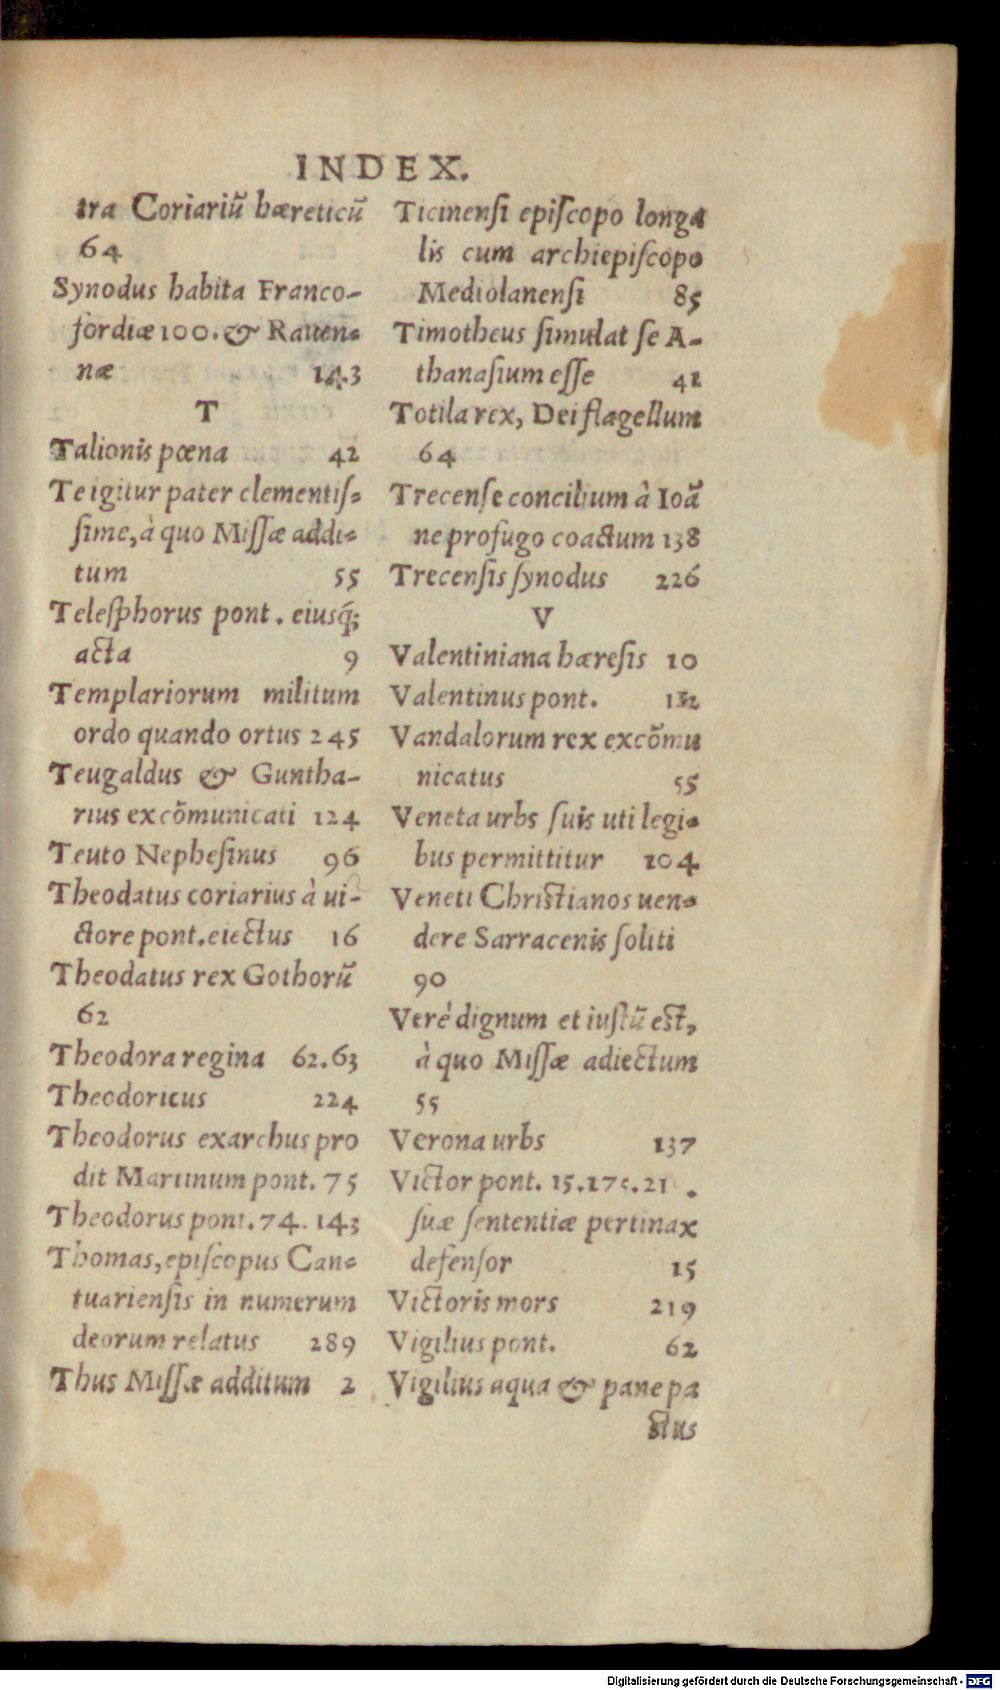 INDEX.
tra Coriariū hæreticū
64
Synodus habita Franco-
fordiæ 100. & Rauen-
næ 143
T
Talionis pœna 42
Te igitur pater clementiſ-
ſime, à quo Miſſæ addi-
tum 55
Teleſphorus pont. eiusq́;
acta 9
Templariorum militum
ordo quando ortus 245
Teugaldus & Guntha-
rius excōmunicati 124
Teuto Nepheſinus 96
Theodatus coriarius à ui-
ctore pont. eiectus 16
Theodatus rex Gothorū
62
Theodora regina 62.63
Theodoricus 224
Theodorus exarchus pro
dit Martinum pont. 75
Theodorus pont. 74. 143
Thomas, epiſcopus Can-
tuarienſis in numerum
deorum relatus 289
Thus Miſſæ additum 2
Ticinenſi epiſcopo longa
lis cum archiepiſcopo
Mediolanenſi 85
Timotheus ſimulat ſe A-
thanaſium eſſe 41
Totila rex, Dei flagellum
64
Trecenſe concilium à Ioā
ne profugo coactum 138
Trecenſis ſynodus 226
V
Valentiniana hæreſis 10
Valentinus pont.
Vandalorum rex excōmu
nicatus 55
Veneta urbs ſuis uti legi-
bus permittitur 104
Veneti Chriſtianos uen-
dere Sarracenis ſoliti
90
Verè dignum et iuſtū eſt,
à quo Miſſæ adiectum
55
Verona urbs 137
Victor pont. 15.
ſuæ ſententiæ pertinax
defenſor 15
Victoris mors 219
Vigilius pont. 62
Vigilius aqua & pane pa
ſtus
Digitalisierung gefördert durch die Deutsche Forschungsgemeinschaft - DFG